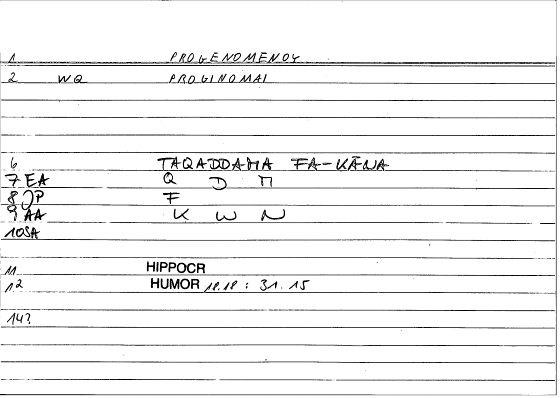 1 PROGENOMENOY
2 WQ PROGINOMAI
6 TAQADDAMA FA-KĀNA
7 EA Q D M
8 JP F
9 AA K W N
10 SA
11 HIPPOCR
12 HUMOR : 31.15
14?